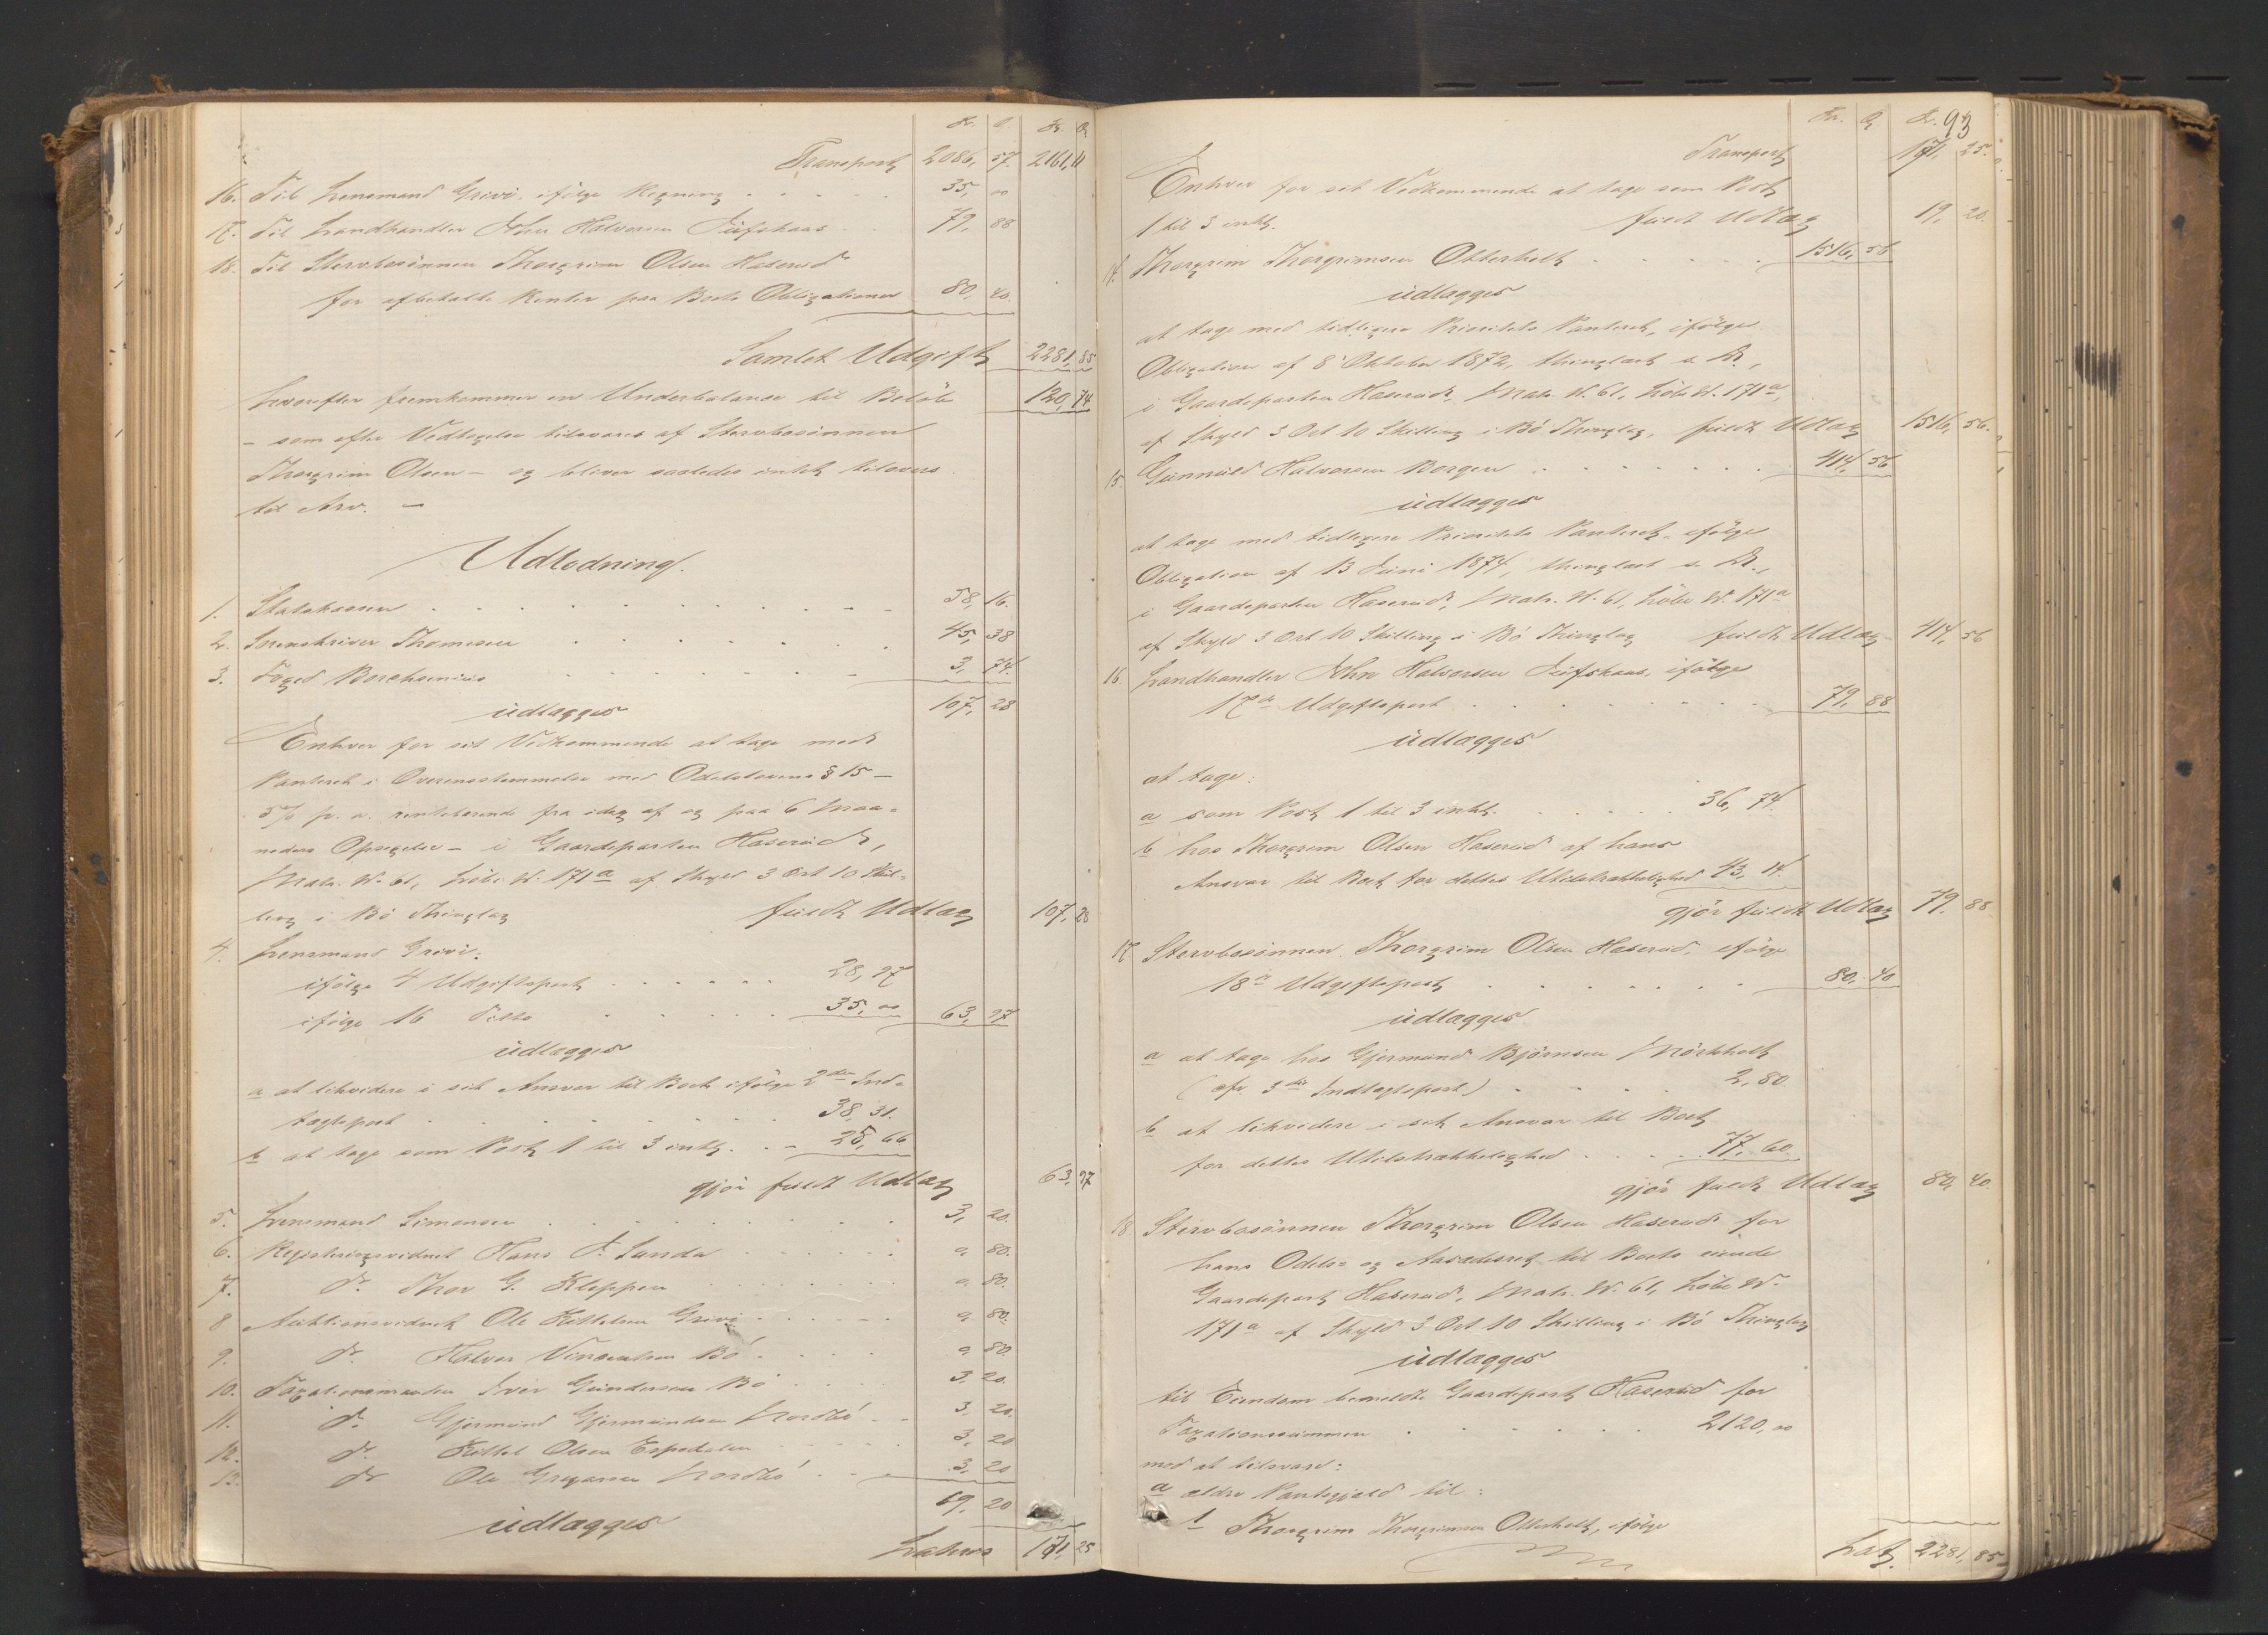 Kr. Ø. Kr. Ø.
Transport 2086, 57. 2161, 11
16. Til Lensmand Grivi, ifölge Regning 35, 00
17. Til Landhandler John Halvorsen 79, 88
18. Til Stervbosönnen Thorgrim Olsen Haserud
for afbetalte Renter paa Boets Obligationer 80, 40.
Samlet Udgift 2281, 85
hvorefter fremkommer en Underbalance til Belöb 120, 74
- som efter Vedtagelse tilsvares af Stervbosönnen
Thorgrim Olsen - og bliver saaledes intet tilovers
til Arv. -
Udlodning.
1. Statskassen 58, 16.
2. Sorenskriver Thomesen 45, 38
3. Foged Borchsenius 3, 74.
udlægges 107, 28
Enhver for sit Vedkommende at tage med
Panteret i Overensstemmelse med Odelslovens § 15 -
5% p. a. rentebærende fra idag af og paa 6 Maa-
neders Opsigelse - i Gaardeparten Haserud,
Matr. N. 61, Löbe N. 171a af Skyld 3 Ort 10 Skil-
ling i Bö Thinglag fuldt Udlæg 107, 28
4. Lensmand Grivi.
ifölge 4 Udgiftspost 28, 97
ifölge 16 Ditto 35, 00 63, 97
udlægges
a at likvidere i sit Ansvar til Boet ifölge 2den Ind-
tægtspost 38, 31.
b at tage som Post 1 til 3 inkl. 25, 66
gjör fuldt Udlæg 63, 97
5. Lensmand Simonsen 3, 20.
6. Registreringsvidnet Hans J. Sanda 0, 80.
7. do. Thor G. Kleppen 0, 80.
8 Auktionsvidnet Ole Kittelsen Grivi 0, 80.
9. do. Halvor Vincentsen Bö 0, 80.
10. Taxationsmanden Iver Gundersen Bö 3, 20.
11. do. Gjermund Gjermundsen Nordbö 3, 20.
12. do. Kittel Olsen Espedalen 3, 20
13. do Ole Gregarsen Nordbö 3, 20
19, 20
udlægges
Latus 171, 25
93
Kr. Ø. Kr.
Transport 171, 25.
Enhver for sit Vedkommende at tage som Post
1 til 3 inkl. fuldt Udlæg 19, 20.
14. Thorgrim Thorgrimsen Otterholt 1516, 56
udlægges
at tage med tidligere Prioritets Panteret, ifölge
Obligation af 8 Oktober 1872, thinglæst s. A.,
i Gaardeparten Haserud, Matr. N. 61, Löbe N. 171a,
af Skyld 3 Ort 10 Skilling i Bö Thinglag, fuldt Udlæg 1516, 56.
15. Gunnuld Halvorsen Borgen 414, 56
udlægges
at tage med tidligere Prioritets Panteret, ifölge
Obligation af 13 Juni 1874, thinglæst s. A.,
i Gaardeparten Haserud, Matr. N. 61, Löbe N. 171a
af Skyld 3 Ort 10 Skilling i Bö Thinglag fuldt Udlæg 414, 56
16. Landhandler John Halvorsen ifölge
17de Udgiftspost 79, 88
udlægges
at tage:
a som Post 1 til 3 inkl. 36, 74.
b hos Thorgrim Olsen Haserud af hans
Ansvar til Boet for dettes Utilstrækkelighed 43, 14.
gjör fuldt Udlæg 79, 88
17 Stervbosönnen Thorgrim Olsen Haserud, ifölge
18de Udgiftspost 80, 40
udlægges
a at tage hos Gjermund Björnsen Mörkholt
(cfr. 3die Indtægtspost) 2, 80
b at likvidere i sit Ansvar til Boet
for dettes Utilstrækkelighed 77, 60.
gjör fuldt Udlæg 80, 40.
18 Stervbosönnen Thorgrim Olsen Haserud for
hans Odels- og Aasædesret til Boets eiende
Gaardepart Haserud, Matr. N. 61, Löbe N.
171a af Skyld 3 Ort 10 Skilling i Bö Thinglag
udlægges
til Eiendom bemeldte Gaardepart Haserud for
Taxationssummen 2120, 00
mod at tilsvare:
a ældre Pantegjæld til:
1 Thorgrim Thorgrimsen Otterholt, ifölge
Lat. 2281, 85